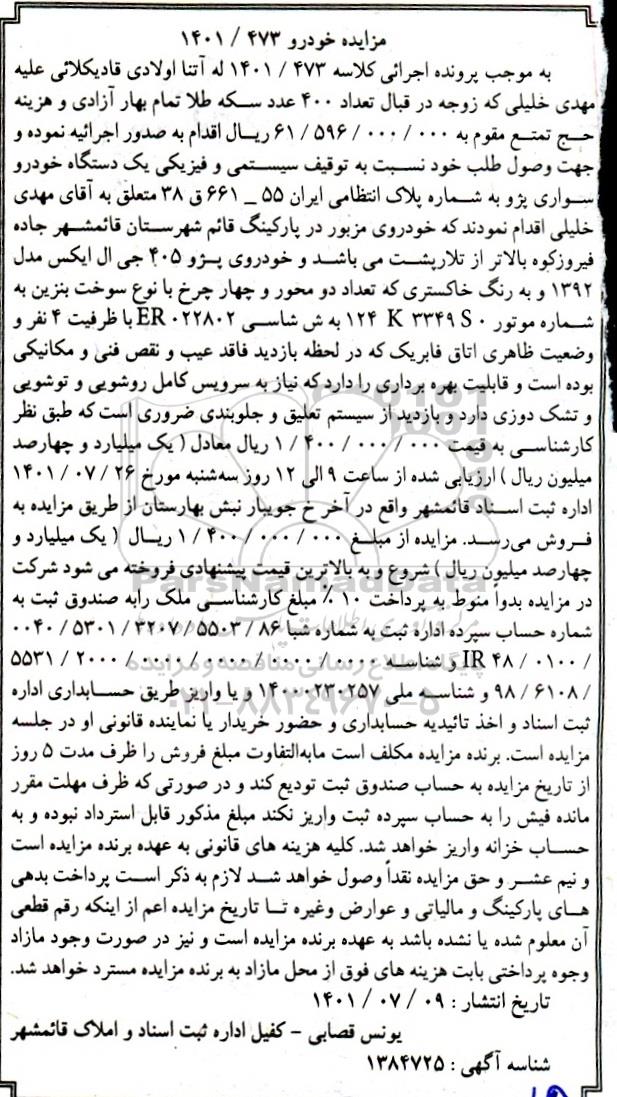 مزایده خودرو ۴۷۳ / ۱۴۰۱
به موجب پرونده اجرائی کلاسه ۴۷۳ / ۱۴۰۱ له آتنا اولادی قادیکلائی علیه
مهدی خلیلی که زوجه در قبال تعداد ۴۰۰ عدد سکه طلا تمام بهار آزادی و هزینه
حج تمتع مقوم به ۰۰۰ / ۰۰۰ / ۵۹۶ / ۶۱ ریال اقدام به صدور اجرائیه نموده و
جهت وصول طلب خود نسبت به توقیف سیستمی و فیزیکی یک دستگاه خودرو
سواری پژو به شماره پلاک انتظامی ایران ۵۵ _ ۶۶۱ ق ۳۸ متعلق به آقای مهدی
خلیلی اقدام نمودند که خودروی مزبور در پارکینگ قائم شهرستان قائمشهر جاده
فیروزکوه بالاتر از تلارپشت می باشد و خودروی پژو ۴۰۵ جی ال ایکس مدل
۱۳۹۲ و به رنگ خاکستری که تعداد دو محور و چهار چرخ با نوع سوخت بنزین به
شماره موتور ۱۲۴ K ۳۳۴۹ S ۰ به ش شاسی ER ۰۲۲۸۰۲ با ظرفیت ۴ نفر و
وضعیت ظاهری اتاق فابریک که در لحظه بازدید فاقد عیب و نقص فنی و مکانیکی
بوده است و قابلیت بهره برداری را دارد که نیاز به سرویس کامل روشویی و توشویی
و تشک دوزی دارد و بازدید از سیستم تعلیق و جلوبندی ضروری است که طبق نظر
کارشناسی به قیمت ۰۰۰ / ۰۰۰ / ۴۰۰ / ۱ ریال معادل ( یک میلیارد و چهارصد
میلیون ریال ) ارزیابی شده از ساعت ۹ الی ۱۲ روز سه‌شنبه مورخ ۲۶ / ۰۷ / ۱۴۰۱
اداره ثبت اسناد قائمشهر واقع در آخر خ جویبار نبش بهارستان از طریق مزایده به
فروش می‌رسد. مزایده از مبلغ ۰۰۰ / ۰۰۰ / ۴۰۰ / ۱ ریال ( یک میلیارد و
چهارصد میلیون ریال ) شروع و به بالاترین قیمت پیشنهادی فروخته می شود شرکت
در مزایده بدواً منوط به پرداخت ۱۰ ٪ مبلغ کارشناسی ملک رابه صندوق ثبت به
شماره حساب سپرده اداره ثبت به شماره شبا ۸۶ / ۵۵۰۳ / ۳۲۰۷ / ۵۳۰۱ / ۰۰۴۰
/ ۰۱۰۰ / ۴۸ IR و شناسه ۰۰۰۰ / ۰۰۰۰ / ۰۰۰۰ / ۰۰۰۰ / ۲۰۰۰ / ۵۵۳۱
/ ۶۱۰۸ / ۹۸ و شناسه ملی ۱۴۰۰۰۲۳۰۲۵۷ و یا واریز طریق حسابداری اداره
ثبت اسناد و اخذ تائیدیه حسابداری و حضور خریدار یا نماینده قانونی او در جلسه
مزایده است. برنده مزایده مکلف است مابه‌التفاوت مبلغ فروش را ظرف مدت ۵ روز
از تاریخ مزایده به حساب صندوق ثبت تودیع کند و در صورتی که ظرف مهلت مقرر
مانده فیش را به حساب سپرده ثبت واریز نکند مبلغ مذکور قابل استرداد نبوده و به
حساب خزانه واریز خواهد شد. کلیه هزینه های قانونی به عهده برنده مزایده است
و نیم عشر و حق مزایده نقداً وصول خواهد شد لازم به ذکر است پرداخت بدهی
های پارکینگ و مالیاتی و عوارض وغیره تا تاریخ مزایده اعم از اینکه رقم قطعی
آن معلوم شده یا نشده باشد به عهده برنده مزایده است و نیز در صورت وجود مازاد
وجوه پرداختی بابت هزینه های فوق از محل مازاد به برنده مزایده مسترد خواهد شد.
تاریخ انتشار : ۰۹ / ۰۷ / ۱۴۰۱
یونس قصابی - کفیل اداره ثبت اسناد و املاک قائمشهر
شناسه آگهی : ۱۳۸۴۷۲۵
ParsNamadData
پایگاه اطلاع رسانی مناقصه و مزایده
۰۲۱-۸۸۳۴۹۶۷۰-۵